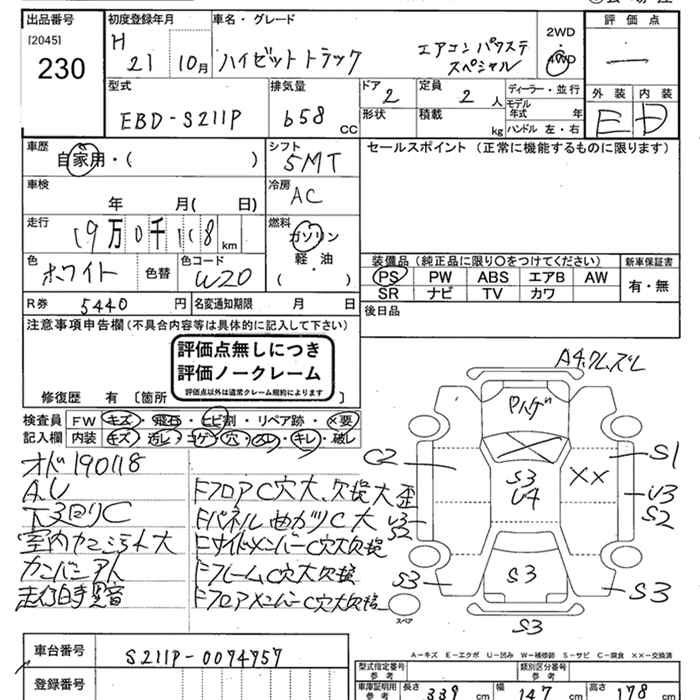 出品番号 初度登録年月 車名・グレード 2WD 評価点
[2045] H 21 10月 ハイゼットトラック エアコンパワステ ・ ー
230 スペシャル 4WD
型式 排気量 ドア 定員 ディーラー・並行 外装 内装
EBD-S211P 658 CC 2 2人 モデル年式 年 E D
形状 積載 kg ハンドル 左・右
車歴 シフト セールスポイント (正常に機能するものに限ります)
自家用・( ) 5MT
車検 冷房
年 月( 日) AC
走行 燃料
19万0千118km ガソリン
軽・油
( )
色 色コード 装備品 (純正品に限り○をつけてください) 新車保証書
ホワイト 色替 W20 PS PW ABS エアB AW 有・無
SR ナビ TV カワ
R券 5440円 名変通知期限 月 日 後日品
注意事項申告欄(不具合内容等は具体的に記入して下さい)
評価点無しにつき
評価ノークレーム
評価点以外は通常クレーム規約によります
修復歴 有 〔箇所 〕
検査員 FW キズ・飛石・ヒビ割・リペア跡・×要
記入欄 内装 キズ・汚レ・コゲ・穴・スレ・キレ・破レ
オド190118
A.U
下回りC
Fフロア C穴大、欠損大 歪
Fパネル曲ガリC大
Fサイドメンバー C穴大欠損
FフレームC穴大欠損
FフロアメンバーC穴大欠損
室内
走行時異音
Pハゲ
C2 S1
S3 ××
U4
U3 U3
S2 S2
S3 S3 S3
スペア S3
A-キズ E-エクボ U-凹み W-補修跡 S-サビ C-腐食 ××-交換済
車台番号 S211P-0074957
登録番号
型式指定番号 参考 類別区分番号 参考
車庫証明用 参考 長さ 339cm 幅 147cm 高さ 178cm